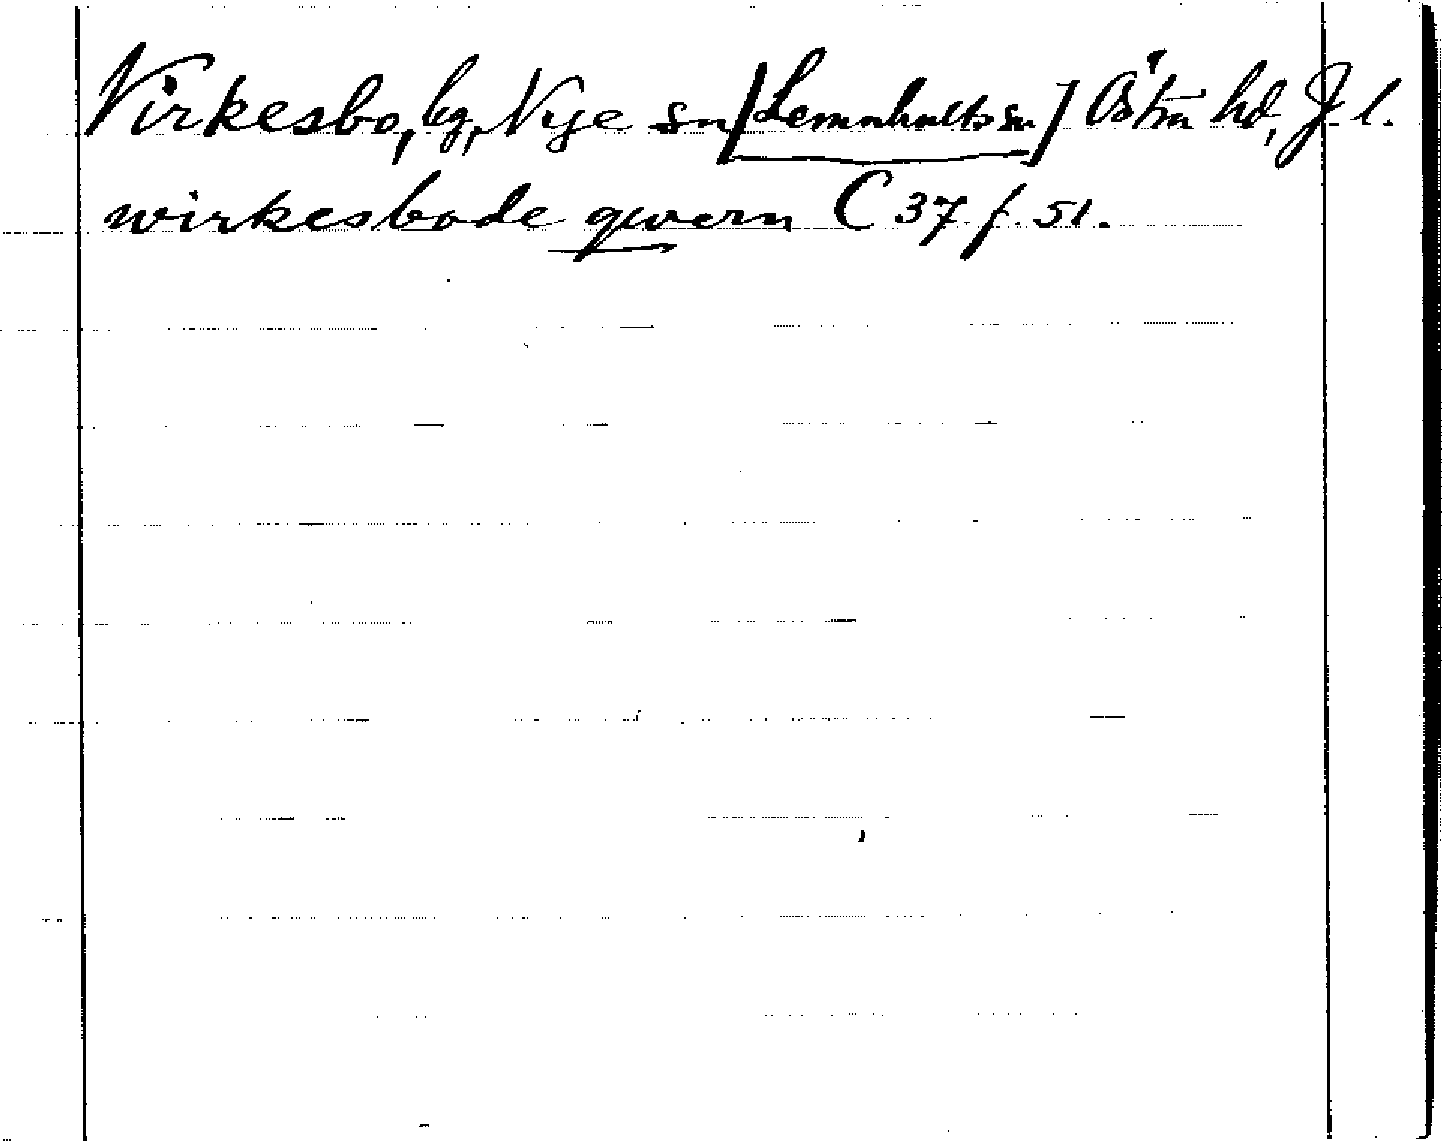 Virkesbo, kg, Nye sn [Lemnhults sn] Östra hd, J. l.
wirkesbode qwern C 37 f. 51.